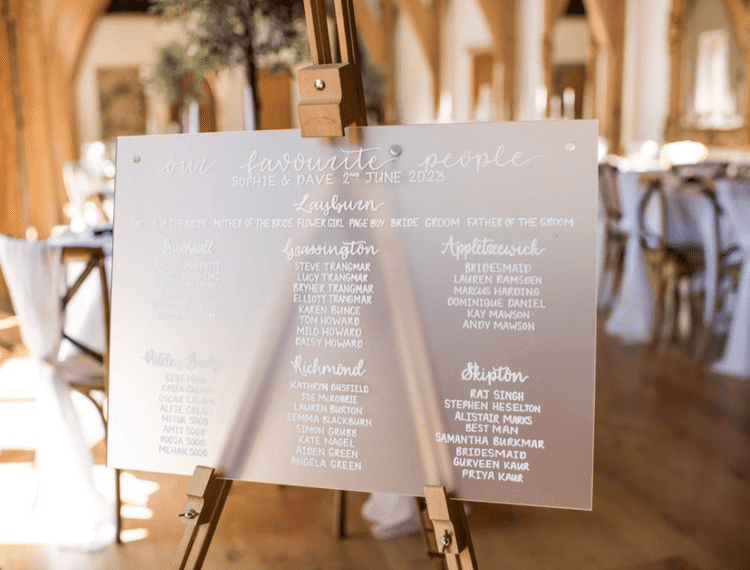 our favourite people
SOPHIE & DAVE 2ND JUNE 2023
Layburn
FATHER OF THE BRIDE MOTHER OF THE BRIDE FLOWER GIRL PAGE BOY BRIDE GROOM FATHER OF THE GROOM
Grassington
STEVE TRANGMAR
LUCY TRANGMAR
BRYHER TRANGMAR
ELLIOTT TRANGMAR
KAREN BUNCE
TOM HOWARD
MILO HOWARD
DAISY HOWARD
Appletreewick
BRIDESMAID
LAUREN RAMSDEN
MARCUS HARDING
DOMINIQUE DANIEL
KAY MAWSON
ANDY MAWSON
BEST MAN
KASIA CALUM
OSCAR CALUM
ALFIE CALUM
MITUL SOOD
AMIT SOOD
POOJA SOOD
MEHAK SOOD
Richmond
KATHRYN BUSFIELD
JOE McROBBIE
LAUREN BURTON
GEMMA BLACKBURN
SIMON GRUBB
KATE NAGEL
AIBEN GREEN
ANGELA GREEN
Skipton
RAJ SINGH
STEPHEN HESELTON
ALISTAIR MARKS
BEST MAN
SAMANTHA BURKMAR
BRIDESMAID
GURVEEN KAUR
PRIYA KAUR